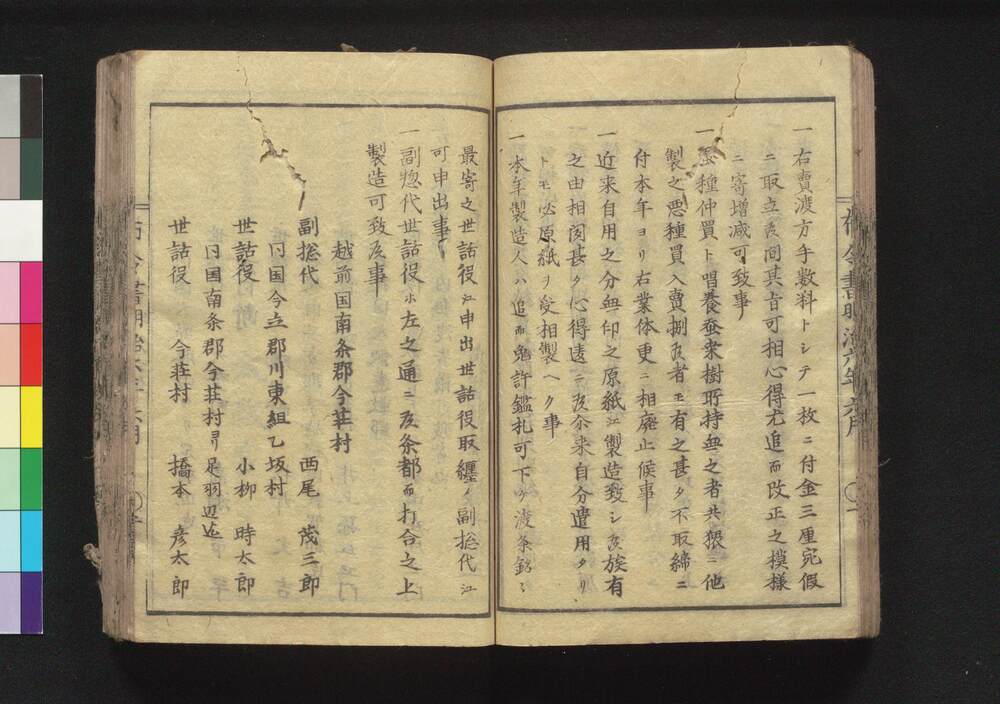 一右賣渡方手数料トシテ一枚ニ付金三厘宛假
ニ取立候間其旨可相心得尤追而改正之模様
ニ寄増減可致事
一蚕種仲買ト唱養蚕桒樹所持無之者共猥ニ他
製之悪種買入賣捌候者モ有之甚タ不取締ニ
付本年ヨリ右業体更ニ相廃止候事
一近来自用之分無印之原紙江製造致シ候族有
之由相聞甚タ心得違ニ候尒来自分遣用タリ
トモ必原紙ヲ受相製ヘク事
一本年製造人ハ追而免許鑑札可下ケ渡条銘々
最寄之世話役江申出世話役取纏メ副惣代江
可申出事
一副惣代世話役ホ左之通ニ候条都而打合之上
製造可致候事
越前国南条郡今荘村
副惣代 西尾 茂三郎
同国今立郡川東組乙坂村
世話役 小柳 時太郎
同国南条郡今荘村ヨリ足羽辺迠
世話役 今荘村 橋本 彦太郎
布令書明治六年六月